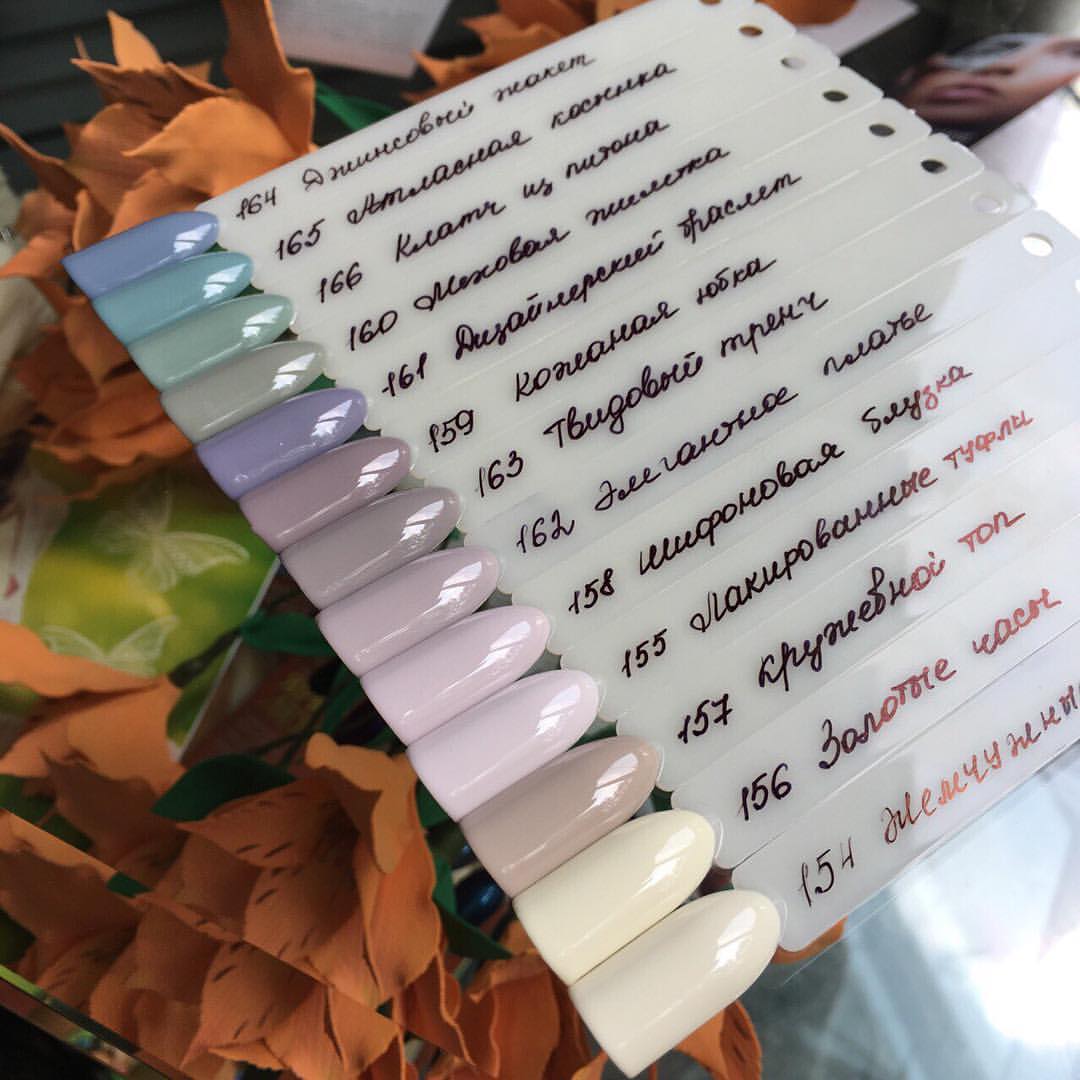 164 Джинсовый жакет
165 Атласная косынка
166 Клатч из питона
160 Меховая жилетка
161 Дизайнерский браслет
159 Кожаная юбка
163 Твидовый тренч
162 Элегантное платье
158 Шифоновая блузка
155 Лакированные туфли
157 Кружевной топ
156 Золотые часы
154